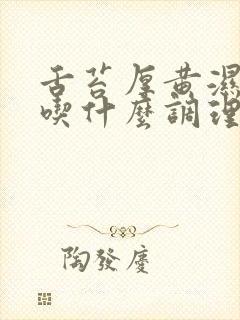 舌苔厚黄濕
喫什麽調理
陶發慶